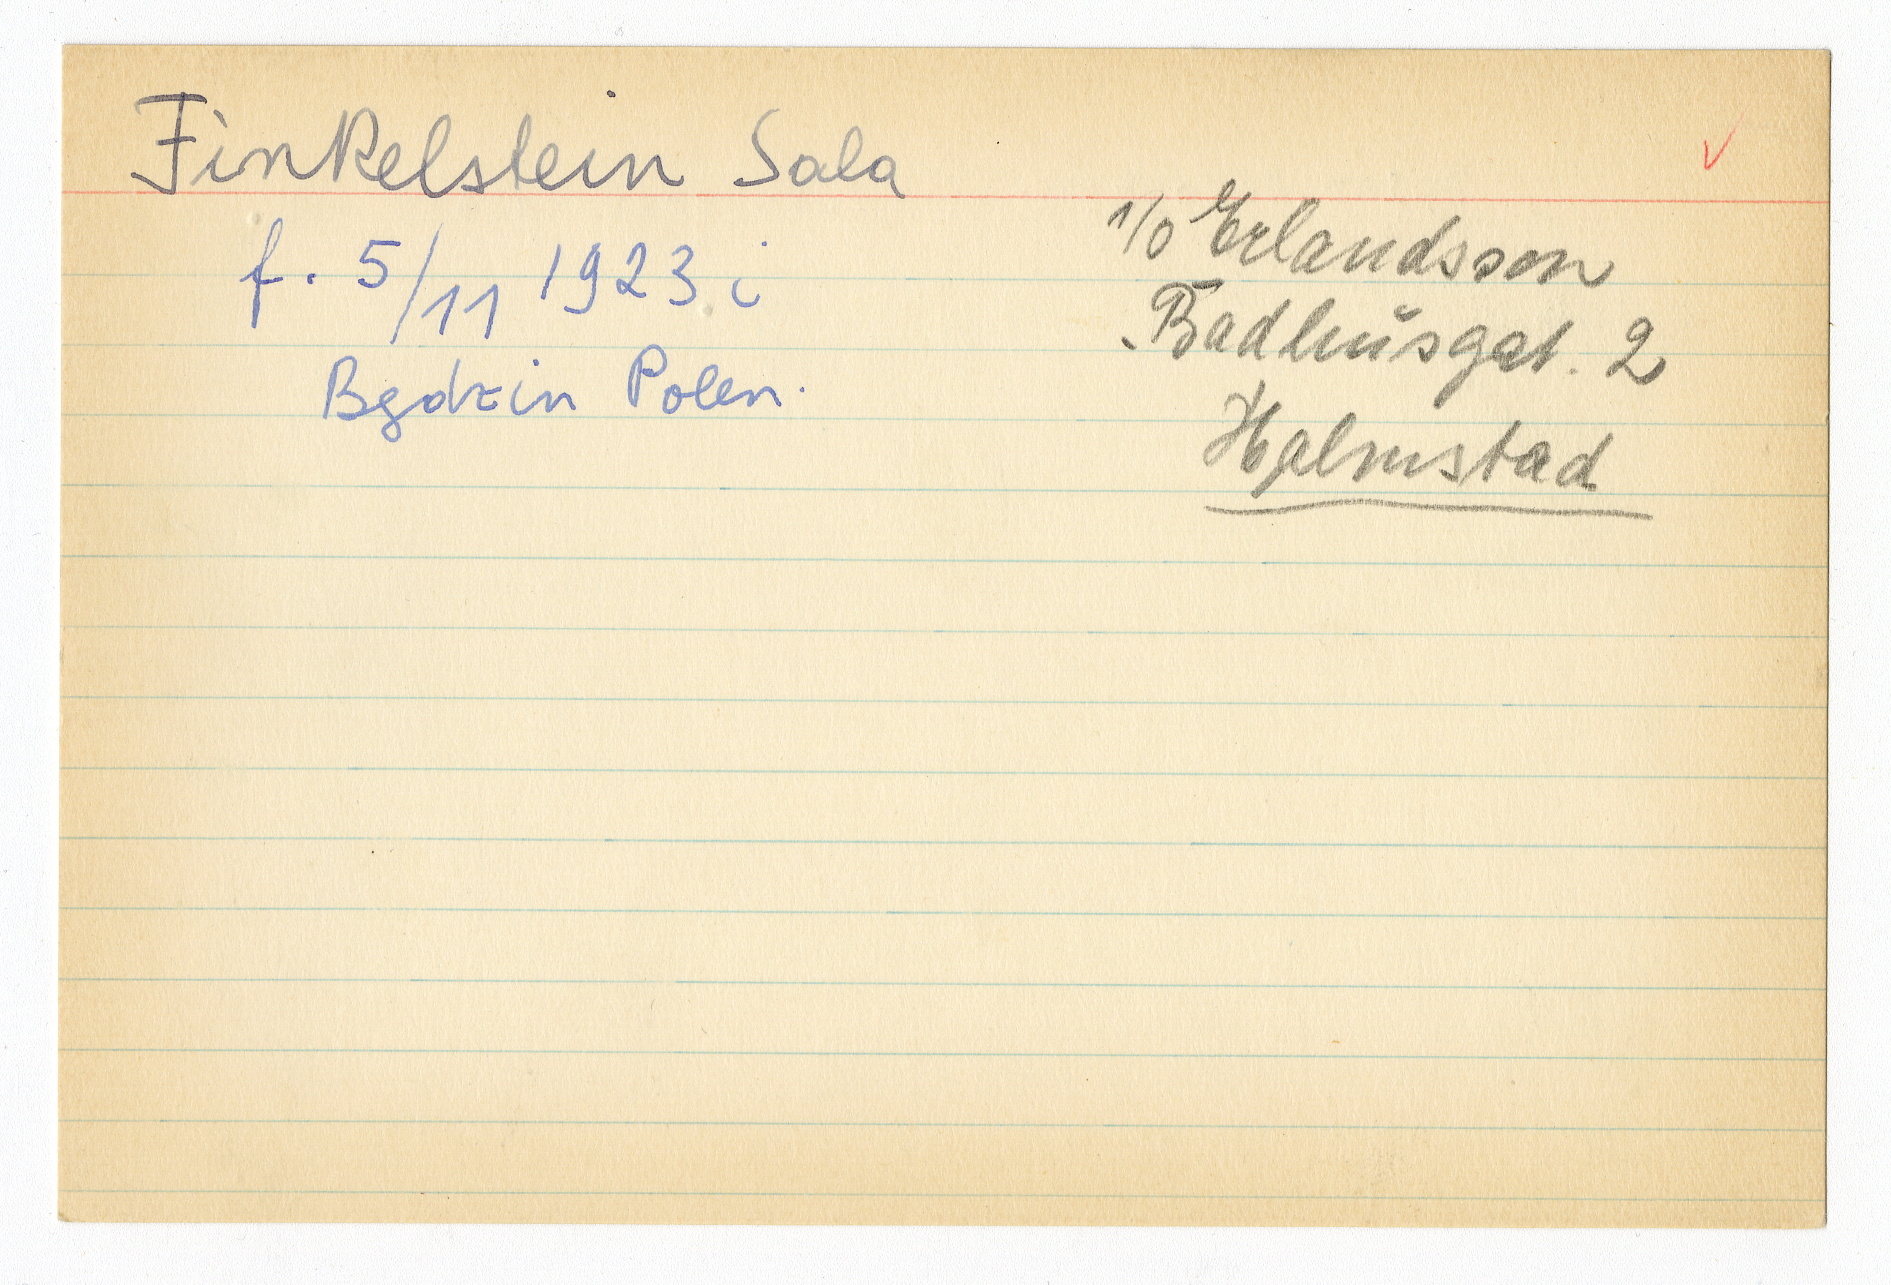 Finkelstein Sala
f. 5/11 1923 i
Będzin Polen.
c/o Erlandsson
Badhusgat. 2
Halmstad